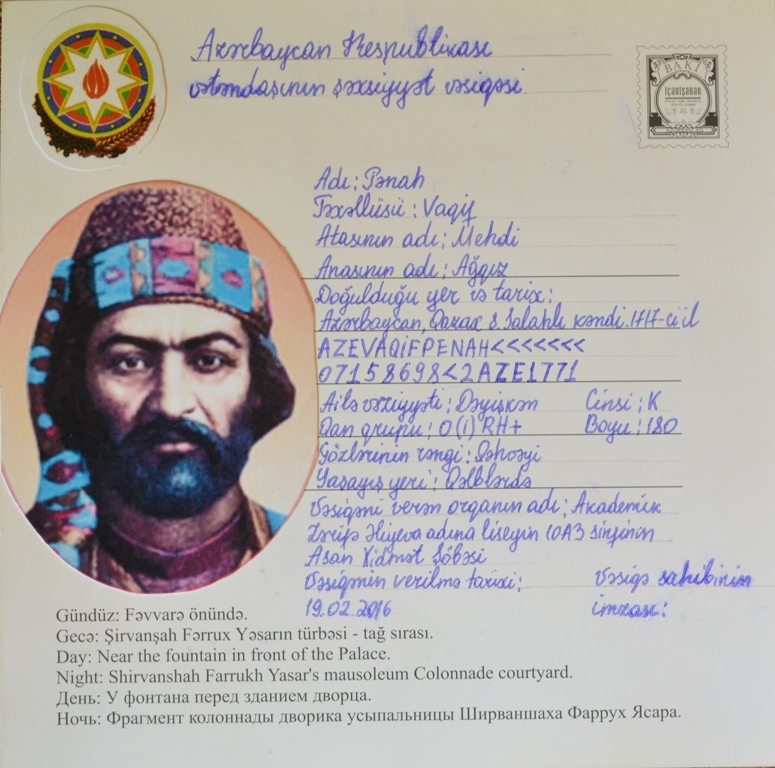 Azərbaycan Respublikası
vətəndaşının şəxsiyyət vəsiqəsi
BAKI
İÇƏRİŞƏHƏR
Adı: Pənah
Təxəllüsü: Vaqif
Atasının adı: Mehdi
Anasının adı: Ağqız
Doğulduğu yer və tarix:
Azərbaycan, Qazax r. Salahlı kəndi. 1717-ci il
AZEVAQİFPENAH<<<<<<<
07158698<2AZE1771
Ailə vəziyyəti: Dəyişkən Cinsi: K
Qan qrupu: O(I) RH+ Boyu: 180
Gözlərinin rəngi: Qəhvəyi
Yaşayış yeri: Qəlblərdə
Vəsiqəni verən orqanın adı: Akademik
Zərifə Əliyeva adına liseyin 10A3 sinfinin
Asan Xidmət Şöbəsi
Vəsiqənin verilmə tarixi: Vəsiqə sahibinin
19.02.2016 imzası:
Gündüz: Fəvvarə önündə.
Gecə: Şirvanşah Fərrux Yəsarın türbəsi - tağ sırası.
Day: Near the fountain in front of the Palace.
Night: Shirvanshah Farrukh Yasar's mausoleum Colonnade courtyard.
День: У фонтана перед зданием дворца.
Ночь: Фрагмент колоннады дворика усыпальницы Ширваншаха Фаррух Ясара.